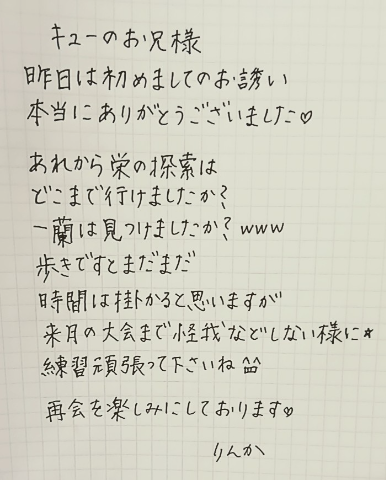 キューのお兄様
昨日は初めましてのお誘い
本当にありがとうございました♡
あれから栄の探索は
どこまで行けましたか?
一蘭は見つけましたか?www
歩きですとまだまだ
時間は掛かると思いますが
来月の大会まで怪我などしない様に★
練習頑張って下さいね^^
再会を楽しみにしております♡
りんか